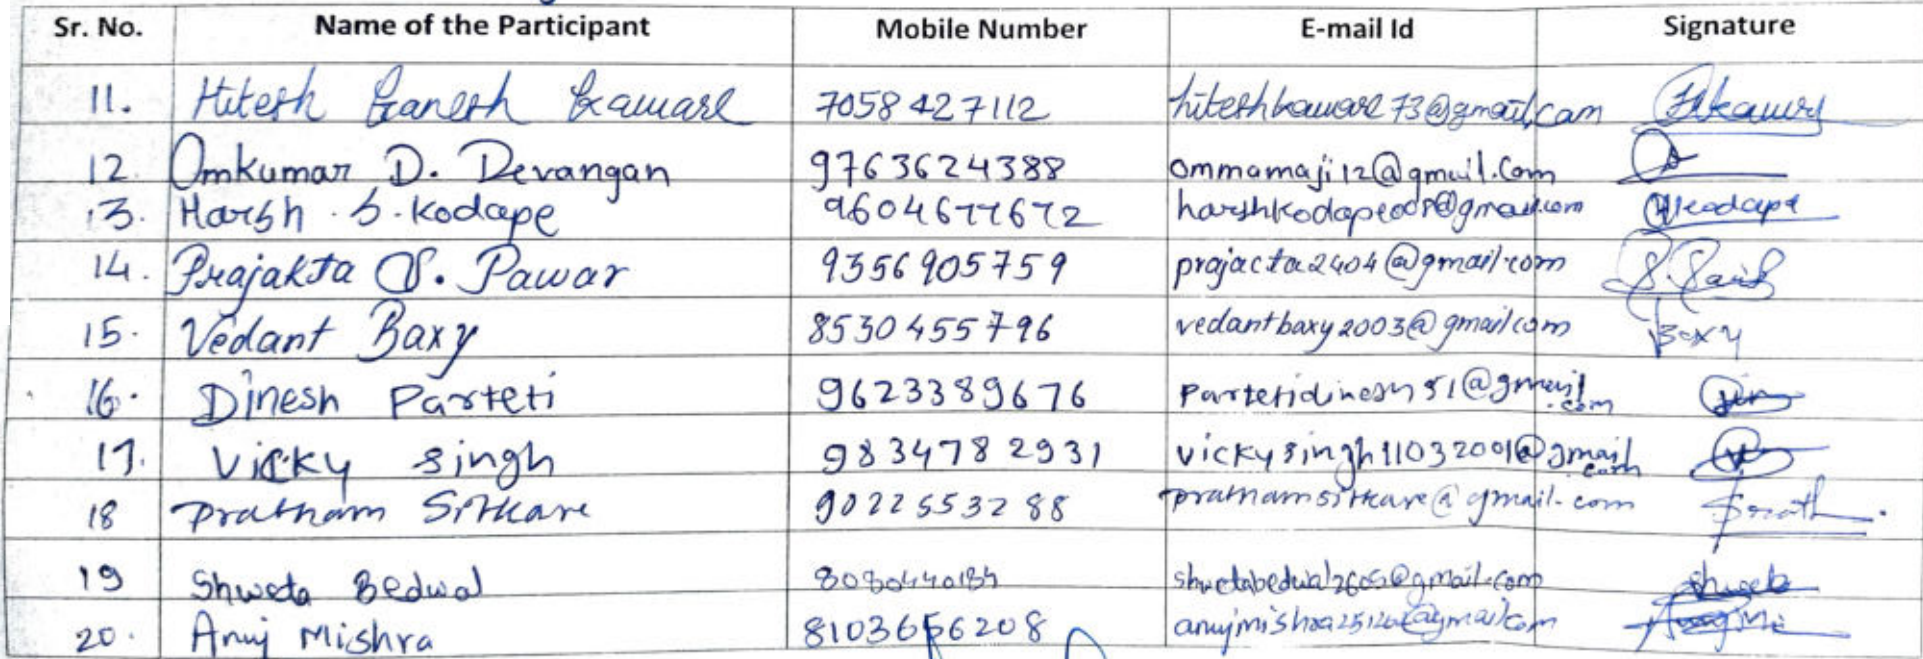 Sr. No. Name of the Participant Mobile Number E-mail Id Signature
11. Hitesh Ganesh Kaware 7058427112 hiteshkaware73@gmail.com
12. Omkumar D. Devangan 9763624388 ommamaji12@gmail.com
13. Harsh S. Kodape 9604677672 Kodape
14. Prajakta S. Pawar 9356905759 prajacta2404@gmail.com
15. Vedant Baxy 8530455796 vedantbaxy2003@gmail.com Baxy
16. Dinesh Parteti 9623389676 Partetidinesh51@gmail.com
17. Vicky singh 9834782931 vickysingh11032001@gmail.com
18 Pratham Sitkare 9022553288 prathamsitkare@gmail.com
19 Shweta Bedwal shwetabedwal2605@gmail.com Shweta
20. Anuj Mishra 8103656208